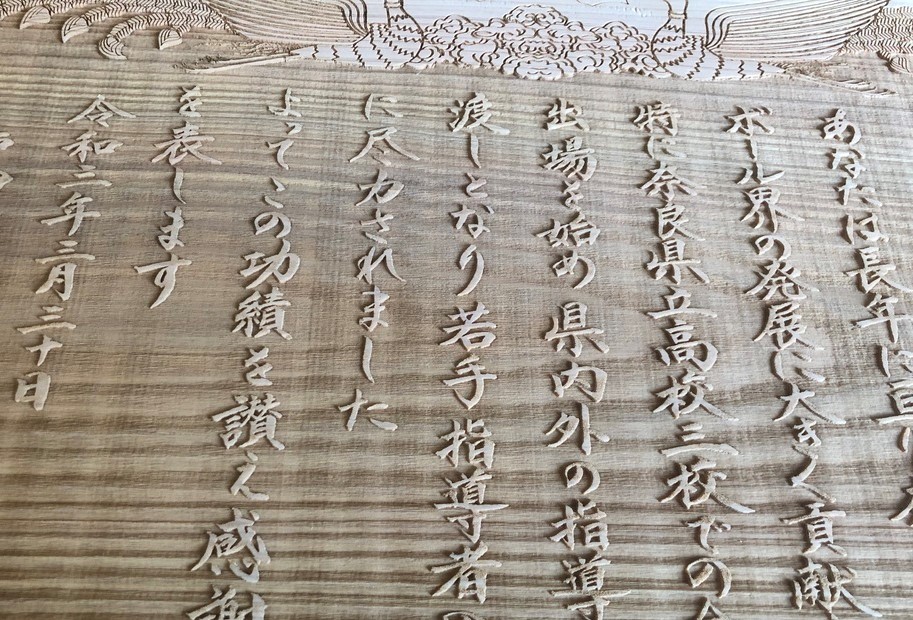 あなたは長年に亘り
ボール界の発展に大きく貢献
特に奈良県立高校三校での
出場を始め 県内外の指導
渡しとなり 若手 指導者の
に尽力されました
よってこの功績を讃え 感謝
を表します
令和二年三月三十日